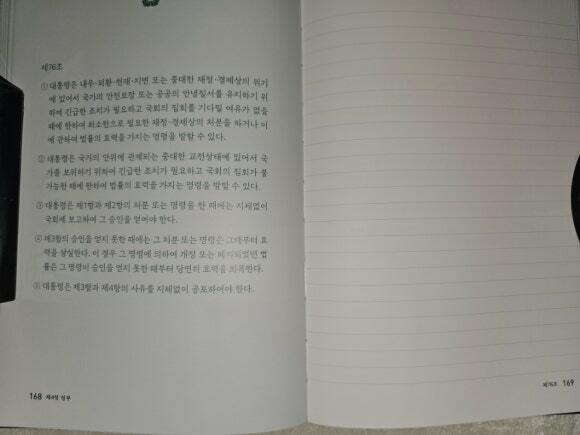 제76조
① 대통령은 내우·외환·천재·지변 또는 중대한 재정·경제상의 위기
에 있어서 국가의 안전보장 또는 공공의 안녕질서를 유지하기 위
하여 긴급한 조치가 필요하고 국회의 집회를 기다릴 여유가 없을
때에 한하여 최소한으로 필요한 재정·경제상의 처분을 하거나 이
에 관하여 법률의 효력을 가지는 명령을 발할 수 있다.
② 대통령은 국가의 안위에 관계되는 중대한 교전상태에 있어서 국
가를 보위하기 위하여 긴급한 조치가 필요하고 국회의 집회가 불
가능한 때에 한하여 법률의 효력을 가지는 명령을 발할 수 있다.
③ 대통령은 제1항과 제2항의 처분 또는 명령을 한 때에는 지체없이
국회에 보고하여 그 승인을 얻어야 한다.
④ 제3항의 승인을 얻지 못한 때에는 그 처분 또는 명령은 그때부터 효
력을 상실한다. 이 경우 그 명령에 의하여 개정 또는 폐지되었던 법
률은 그 명령이 승인을 얻지 못한 때부터 당연히 효력을 회복한다.
⑤ 대통령은 제3항과 제4항의 사유를 지체없이 공포하여야 한다.
168 제4장 정부
제76조 169